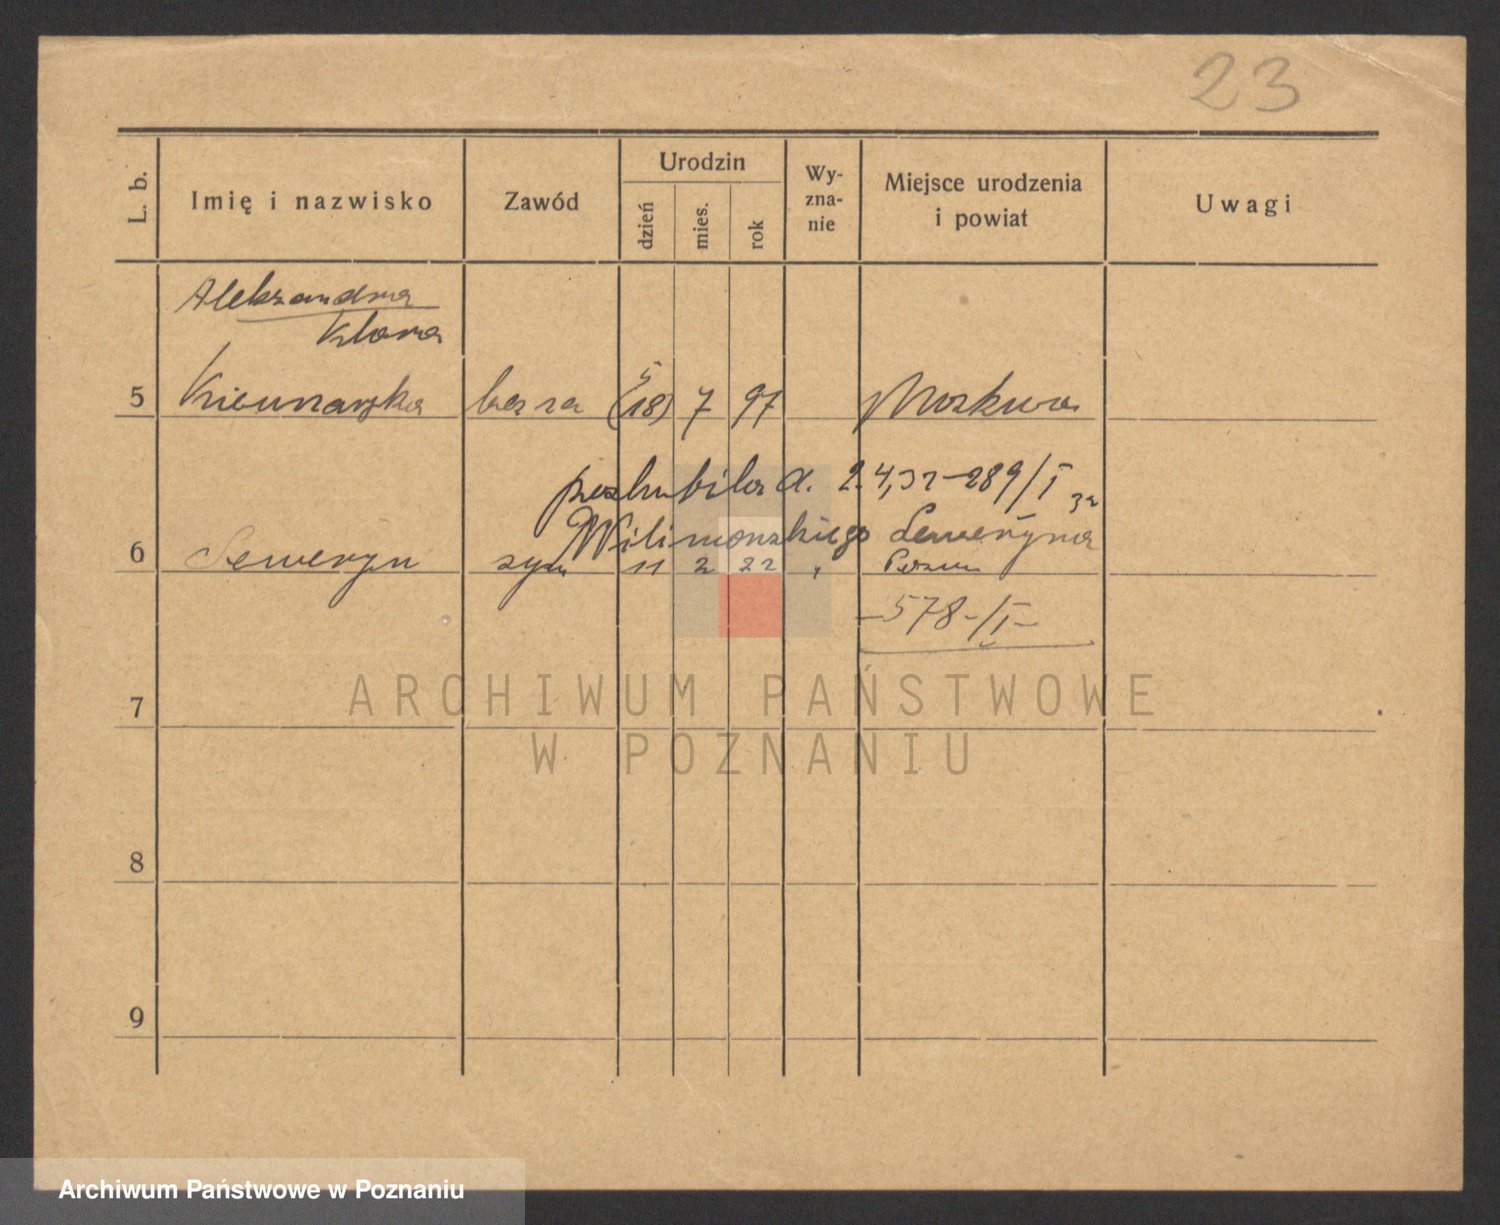 23
L. b.
Imię i nazwisko
Zawód
Urodzin
dzień
mies.
rok
Wy-
zna-
nie
Miejsce urodzenia
i powiat
Uwagi
Aleksandra
Klara
5 (18) 7 97 Moskwa
poślubiła d. 2.4,32 - 289/I 32
Seweryna
6 Seweryn syn 11 2 22 "
-578-/I-
7
8
9
ARCHIWUM PAŃSTWOWE
W POZNANIU
Archiwum Państwowe w Poznaniu